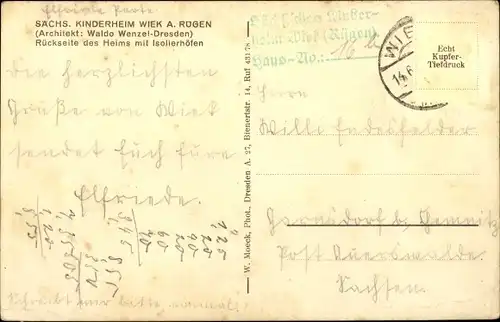 SÄCHS. KINDERHEIM WIEK A. RÜGEN
(Architekt: Waldo Wenzel-Dresden)
Rückseite des Heims mit Isolierhöfen
Die herzlichsten
Grüße von Wiek
sendet Euch Eure
Elfriede.
Schreibt mir bitte nochmals
W. Moeck, Phot., Dresden A. 27, Bienertstr. 14, Ruf 43178
Wiek (Rügen)
Haus-No.:
WIE
14.6
Echt
Kupfer-
Tiefdruck
Herrn
Willi Endesfelder
Garnsdorf b/ Chemnitz
Post Auerswalde.
Sachsen.